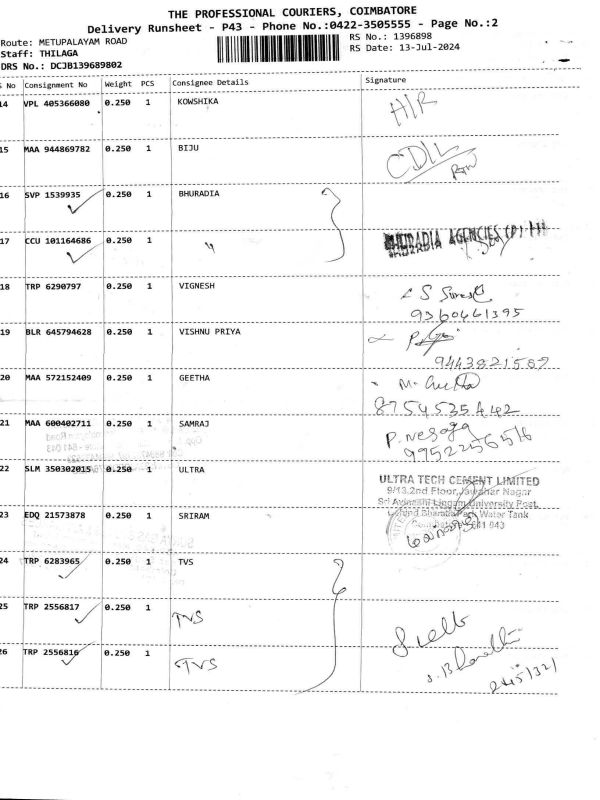 THE PROFESSIONAL COURIERS, COIMBATORE
Delivery Runsheet - P43 - Phone No.:0422-3505555 - Page No.:2
Route: METUPALAYAM ROAD
Staff: THILAGA
DRS No.: DCJB139689802
RS No.: 1396898
RS Date: 13-Jul-2024
S No Consignment No Weight PCS Consignee Details Signature
14 VPL 405366080 0.250 1 KOWSHIKA H/R
15 MAA 944869782 0.250 1 BIJU
16 SVP 1539935 0.250 1 BHURADIA
17 CCU 101164686 0.250 1 " BHURADIA AGENCIES (P)
18 TRP 6290797 0.250 1 VIGNESH
9360661395
19 BLR 645794628 0.250 1 VISHNU PRIYA
9443821587
20 MAA 572152409 0.250 1 GEETHA
8754535442
21 MAA 600402711 0.250 1 SAMRAJ
9952256516
22 SLM 350302015 0.250 1 ULTRA
ULTRA TECH CEMENT LIMITED
9/13,2nd Floor,Jawahar Nagar
Sri Avinashi Lingam University Post,
Water Tank
641 043
23 EDQ 21573878 0.250 1 SRIRAM
24 TRP 6283965 0.250 1 TVS
25 TRP 2556817 0.250 1 TVS
26 TRP 2556816 0.250 1 TVS